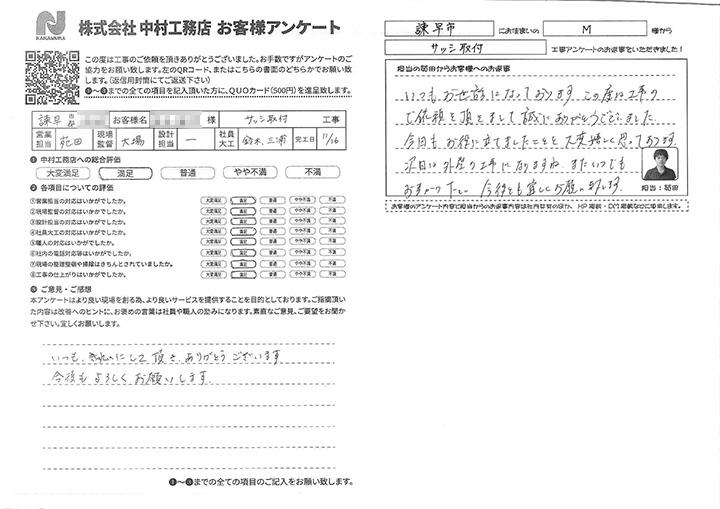 NAKAMURA
株式会社 中村工務店 お客様アンケート
この度は工事のご依頼を頂きありがとうございました。お手数ですがアンケートのご
協力をお願い致します。左のQRコード、またはこちらの書面のどちらかでお願い致
します。(返信用封筒にてご返送下さい)
❶〜❸までの全ての項目を記入頂いた方に、QUOカード(500円)を進呈致します。
諫早 市 お客様名 様 サッシ取付 工事
営業担当 苑田 現場監督 大場 設計担当 ー 社員大工 鈴木、三浦 完工日 11/16
❶ 中村工務店への総合評価
大変満足 満足 普通 やや不満 不満
❷ 各項目についての評価
①営業担当の対応はいかがでしたか。 大変満足 満足 普通 やや不満 不満
②現場監督の対応はいかがでしたか。 大変満足 満足 普通 やや不満 不満
③設計担当の対応はいかがでしたか。 大変満足 満足 普通 やや不満 不満
④社員大工の対応はいかがでしたか。 大変満足 満足 普通 やや不満 不満
⑤職人の対応はいかがでしたか。 大変満足 満足 普通 やや不満 不満
⑥社内の電話対応等はいかがでしたか。 大変満足 満足 普通 やや不満 不満
⑦現場の整理整頓や掃除はきちんとされていましたか。 大変満足 満足 普通 やや不満 不満
⑧工事の仕上がりはいかがでしたか。 大変満足 満足 普通 やや不満 不満
❸ ご意見・ご感想
本アンケートはより良い現場を創る為、より良いサービスを提供することを目的としております。ご指摘頂い
た内容は改善へのヒントに、お褒めの言葉は社員や職人の励みになります。素直なご意見、ご要望をお聞か
せ下さい。宜しくお願いします。
いつも、きれいにして頂き、ありがとうございます
今後もよろしくお願いします。
❶〜❸までの全ての項目のご記入をお願い致します。
諫早市 にお住いの M 様から
サッシ取付 工事アンケートのお返事をいただきました!
担当の苑田からお客様へのお返事
いつもお世話になっております。この度は工事の
ご依頼を頂きまして誠にありがとうございました。
今回もお役に立てましたことを大変嬉しく思っております。
次回は外壁の工事になりますね。またいつでも
お声かけ下さい。今後とも宜しくお願い致します。
担当:苑田
お客様のアンケート内容と担当からのお返事内容は社内共有のほか、HP掲載・DM掲載などに使用します。